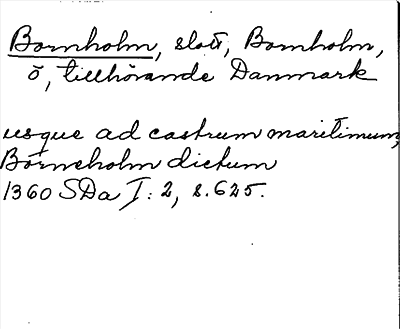 Bornholm, slott, Bornholm,
ö, tillhörande Danmark
usque ad castrum maritimum,
Börneholm dictum
1360 SDa I: 2, s. 625.